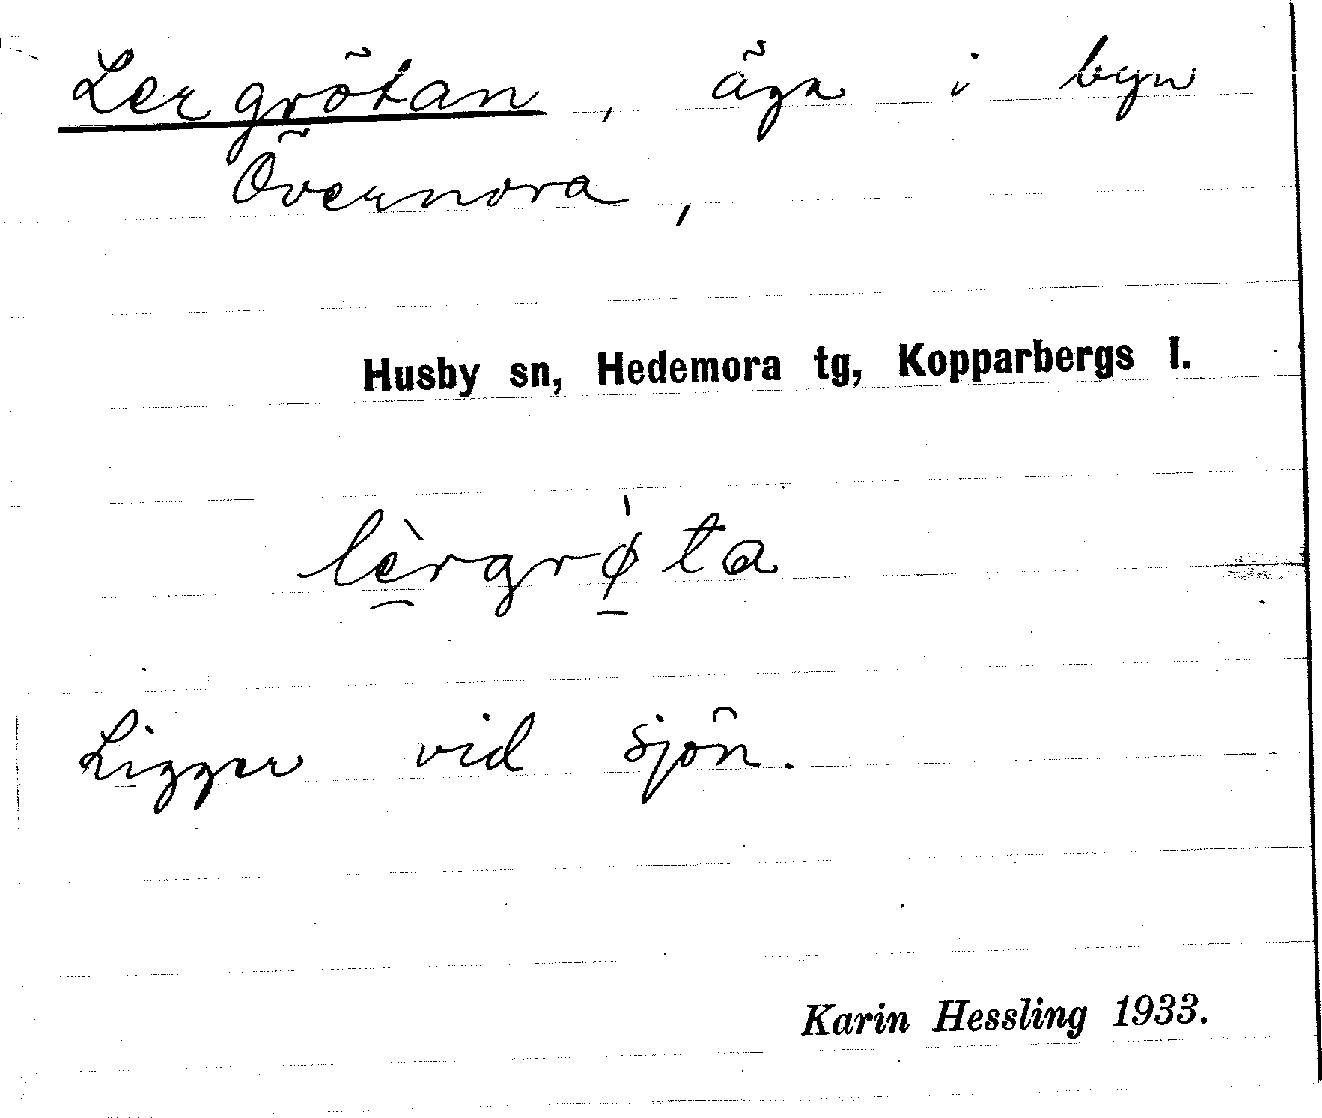 Lergrötan, äga i byn
Övernora,
Husby sn, Hedemora tg, Kopparbergs l.
lèrgrø̀ta
Ligger vid sjön.
Karin Hessling 1933.